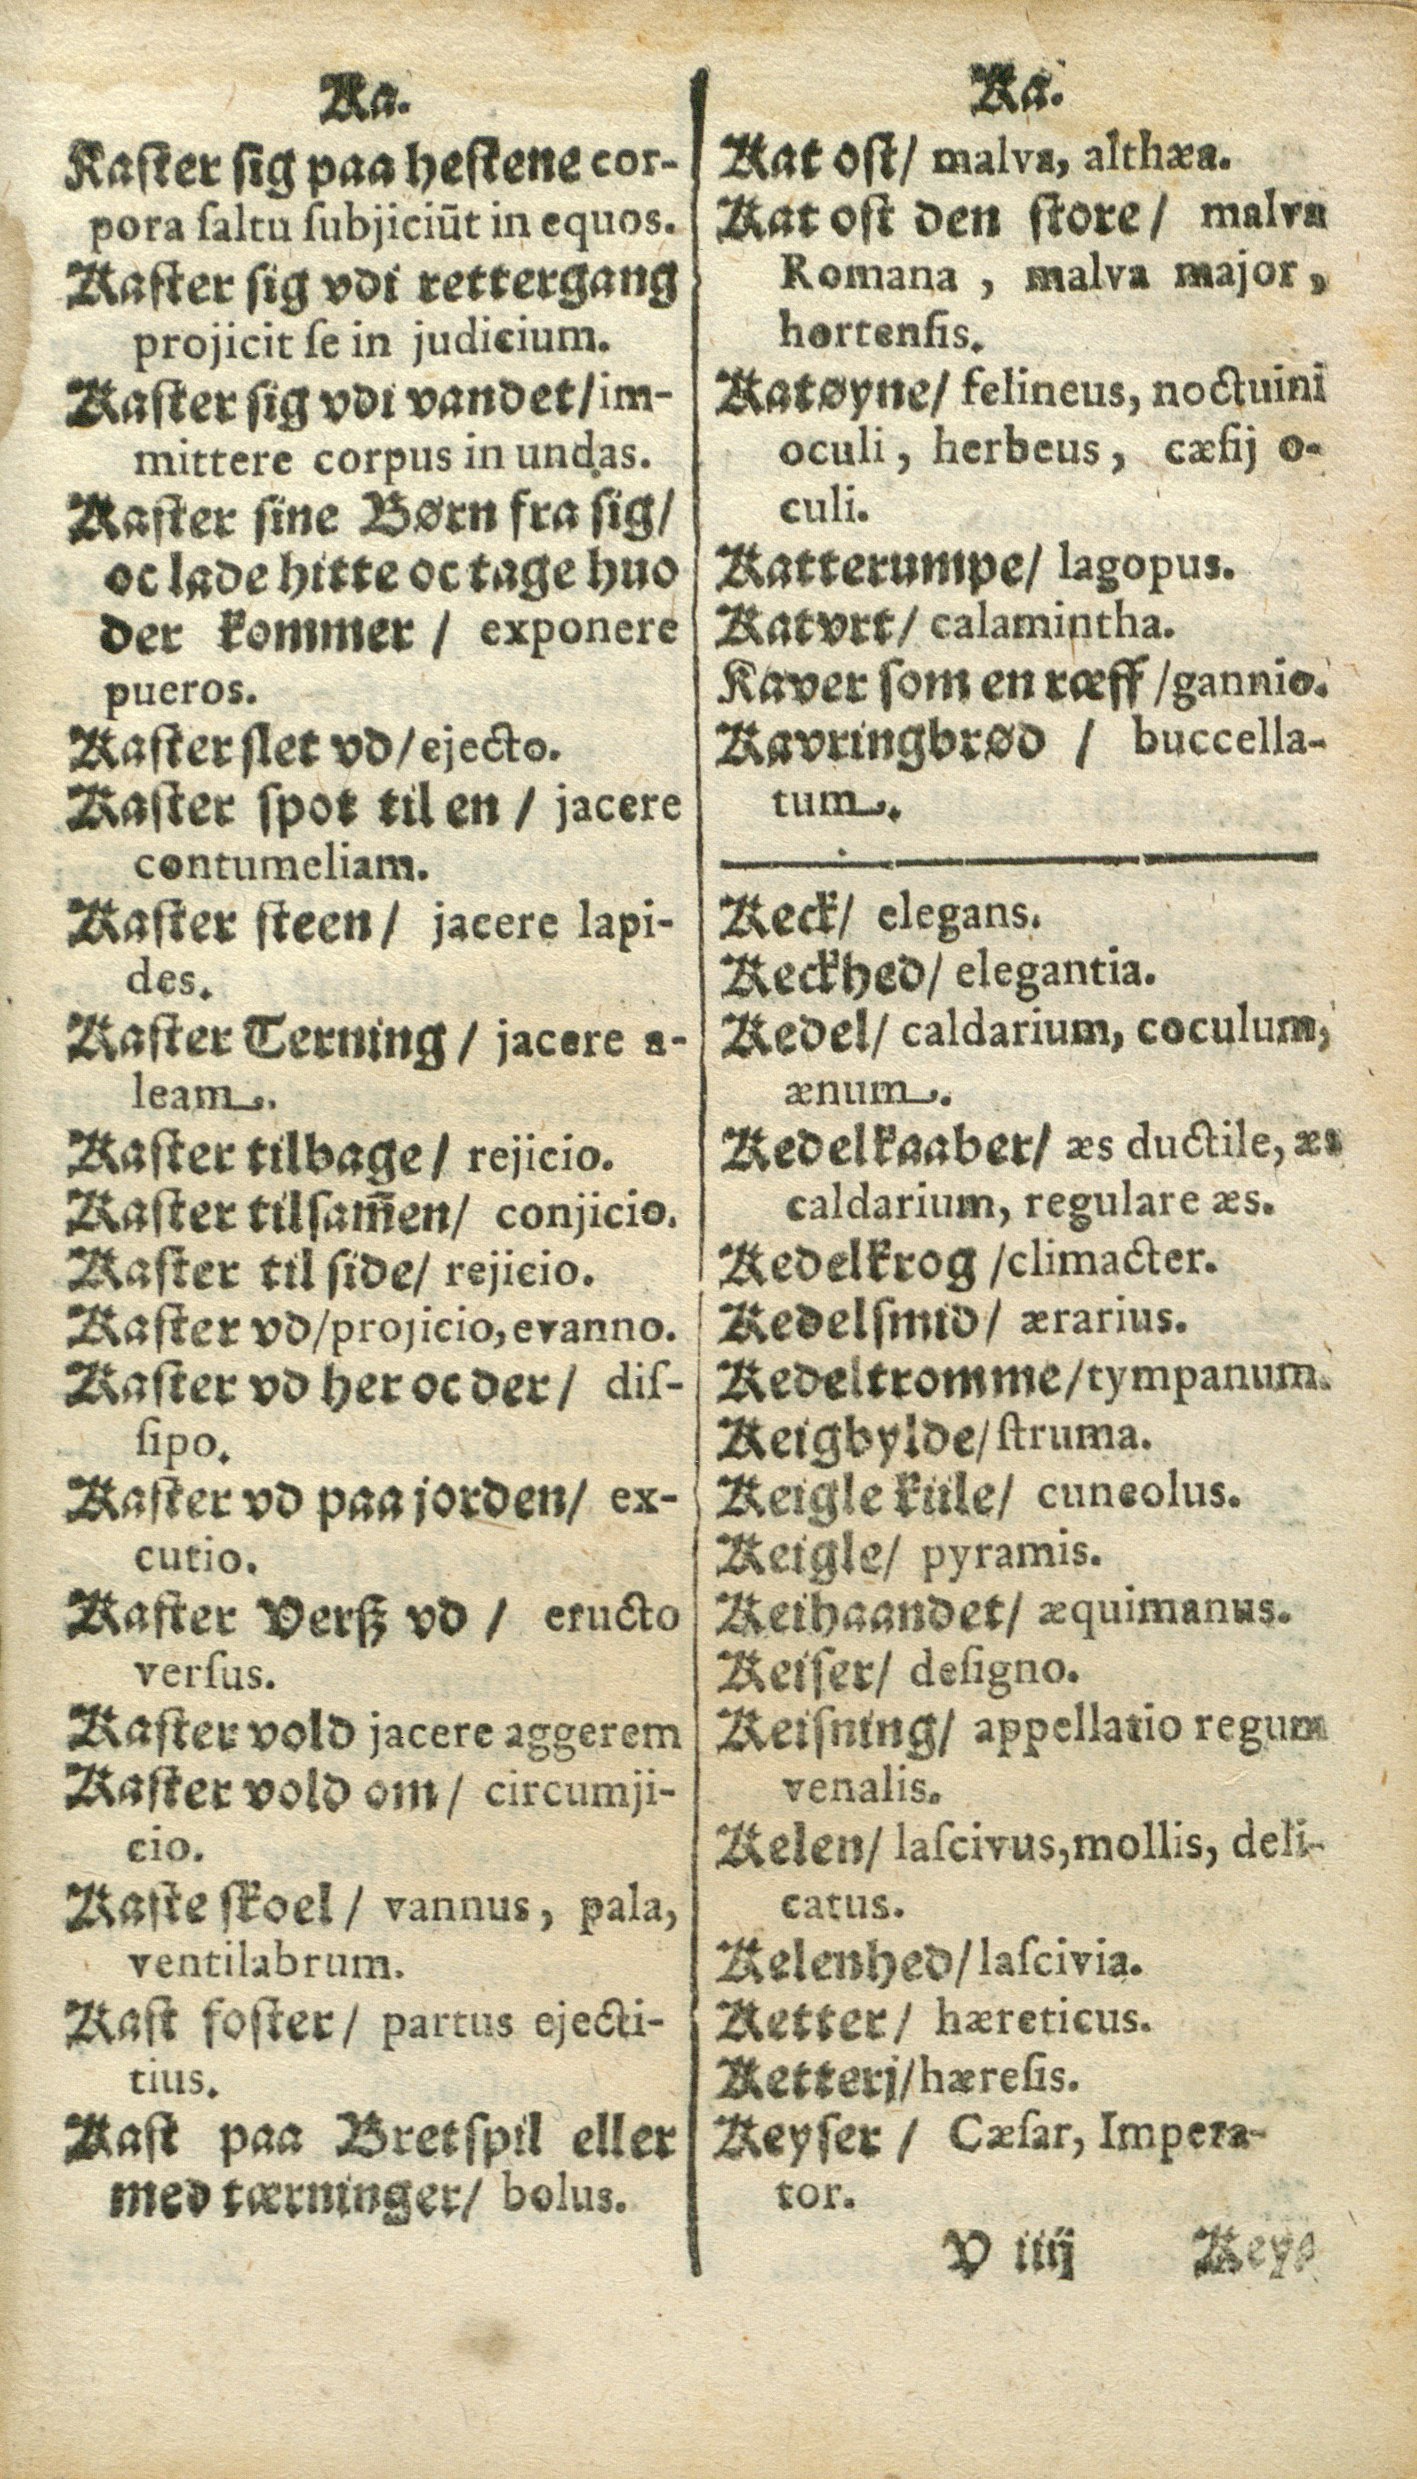 Ka.
Kaſter ſig paa heſtene cor-
pora ſaltu ſubjiciūt in equos.
Kaſter ſig vdi rettergang
projicit ſe in judicium.
Kaſter ſig vdi vandet/im-
mittere corpus in undas.
Kaſter ſine Børn fra ſig/
oc lade hitte oc tage huo
der kommer / exponere
pueros.
Kaſter ſlet vd/ejecto.
Kaſter ſpot til en / jacere
contumeliam.
Kaſter ſteen/ jacere lapi-
des.
Kaſter Terning / jacere a-
leam.
Kaſter tilbage / rejicio.
Kaſter tilſam̄en/ conjicio.
Kaſter til ſide/ rejicio.
Kaſter vd/projicio, evanno.
Kaſter vd her oc der / diſ-
ſipo.
Kaſter vd paa jorden/ ex-
cutio.
Kaſter Verß vd / eructo
verſus.
Kaſter vold jacere aggerem
Kaſter vold om / circumji-
cio.
Kaſte ſkoel / vannus, pala,
ventilabrum.
Kaſt foſter / partus ejecti-
tius.
Kaſt paa Bretſpil eller
med tærninger/ bolus.
Ka.
Kat oſt/ malva, althæa.
Kat oſt den ſtore / malva
Romana , malva major ,
hortenſis.
Katøyne/ felineus, noctuini
oculi , herbeus , cæſij o-
culi.
Katterumpe/ lagopus.
Katvrt/ calamintha.
Kaver ſom en ræff /gannio.
Kavringbrød / buccella-
tum.
Keck/ elegans.
Keckhed/ elegantia.
Kedel/ caldarium, coculum,
ænum.
Kedelkaaber/ æs ductile, æs
caldarium, regulare æs.
Kedelkrog /climacter.
Kedelſmid/ ærarius.
Kedeltromme/tympanum.
Keigbylde/ſtruma.
Keigle kiile/ cuneolus.
Keigle/ pyramis.
Keihaandet/ æquimanus.
Keiſer/ deſigno.
Keiſning/ appellatio regum
venalis.
Kelen/ laſcivus,mollis, deli-
catus.
Kelenhed/laſcivia.
Ketter/ hæreticus.
Ketterj/hæreſis.
Keyſer / Cæſar, Impera-
tor.
V iiij Keys